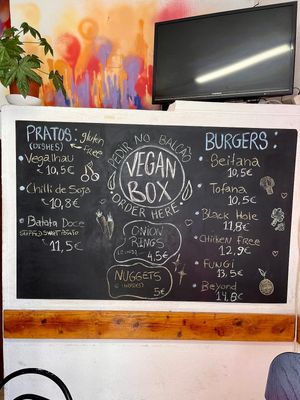 PRATOS:
(DISHES)
gluten
free
• Vegalhau
10,5€
• Chilli de Soja
10,8€
• Batata Doce
STUFFED SWEET POTATO
11,5€
PEDIR NO BALCÃO
VEGAN
BOX
ORDER HERE
ONION
RINGS
4,5€
NUGGETS
5€
BURGERS:
• Seitana
10,5€
• Tofana
10,5€
• Black Hole
11,8€
• Chicken Free
12,9€
• FUNGI
13,5€
• Beyond
14,8€